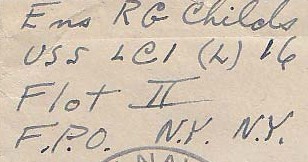 Ens RG Childs
USS LCI (L) 16
Flot II
F.P.O. N.Y. N.Y.